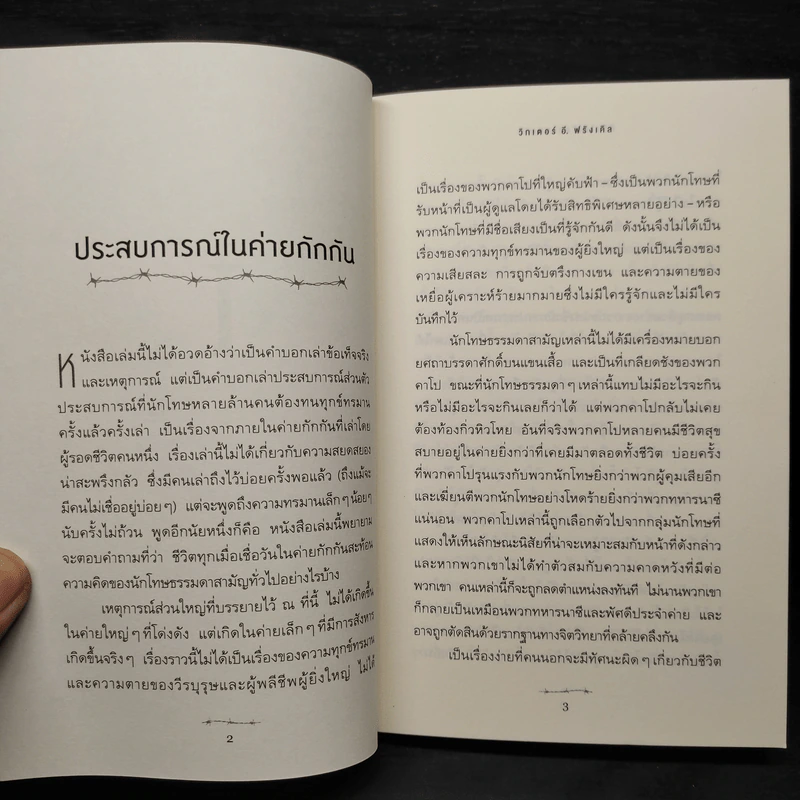 ประสบการณ์ในค่ายกักกัน
หนังสือเล่มนี้ไม่ได้อวดอ้างว่าเป็นคำบอกเล่าข้อเท็จจริง
และเหตุการณ์ แต่เป็นคำบอกเล่าประสบการณ์ส่วนตัว
ประสบการณ์ที่นักโทษหลายล้านคนต้องทนทุกข์ทรมาน
ครั้งแล้วครั้งเล่า เป็นเรื่องจากภายในค่ายกักกันที่เล่าโดย
ผู้รอดชีวิตคนหนึ่ง เรื่องเล่านี้ไม่ได้เกี่ยวกับความสยดสยอง
น่าสะพรึงกลัว ซึ่งมีคนเล่าถึงไว้บ่อยครั้งพอแล้ว (ถึงแม้จะ
มีคนไม่เชื่ออยู่บ่อยๆ) แต่จะพูดถึงความทรมานเล็กๆ น้อยๆ
นับครั้งไม่ถ้วน พูดอีกนัยหนึ่งก็คือ หนังสือเล่มนี้พยายาม
จะตอบคำถามที่ว่า ชีวิตทุกเมื่อเชื่อวันในค่ายกักกันสะท้อน
ความคิดของนักโทษธรรมดาสามัญทั่วไปอย่างไรบ้าง
เหตุการณ์ส่วนใหญ่ที่บรรยายไว้ ณ ที่นี้ ไม่ได้เกิดขึ้น
ในค่ายใหญ่ๆ ที่โด่งดัง แต่เกิดในค่ายเล็กๆ ที่มีการสังหาร
เกิดขึ้นจริงๆ เรื่องราวนี้ไม่ได้เป็นเรื่องของความทุกข์ทรมาน
และความตายของวีรบุรุษและผู้พลีชีพผู้ยิ่งใหญ่ ไม่ได้
2
วิกเตอร์ อี. ฟรังเคิล
เป็นเรื่องของพวกคาโปที่ใหญ่คับฟ้า – ซึ่งเป็นพวกนักโทษที่
รับหน้าที่เป็นผู้ดูแลโดยได้รับสิทธิพิเศษหลายอย่าง – หรือ
พวกนักโทษที่มีชื่อเสียงเป็นที่รู้จักกันดี ดังนั้นจึงไม่ได้เป็น
เรื่องของความทุกข์ทรมานของผู้ยิ่งใหญ่ แต่เป็นเรื่องของ
ความเสียสละ การถูกจับตรึงกางเขน และความตายของ
เหยื่อผู้เคราะห์ร้ายมากมายซึ่งไม่มีใครรู้จักและไม่มีใคร
บันทึกไว้
นักโทษธรรมดาสามัญเหล่านี้ไม่ได้มีเครื่องหมายบอก
ยศถาบรรดาศักดิ์บนแขนเสื้อ และเป็นที่เกลียดชังของพวก
คาโป ขณะที่นักโทษธรรมดาๆ เหล่านี้แทบไม่มีอะไรจะกิน
หรือไม่มีอะไรจะกินเลยก็ว่าได้ แต่พวกคาโปกลับไม่เคย
ต้องท้องกิ่วหิวโหย อันที่จริงพวกคาโปหลายคนมีชีวิตสุข
สบายอยู่ในค่ายยิ่งกว่าที่เคยมีมาตลอดทั้งชีวิต บ่อยครั้ง
ที่พวกคาโปรุนแรงกับพวกนักโทษยิ่งกว่าพวกผู้คุมเสียอีก
และเฆี่ยนตีพวกนักโทษอย่างโหดร้ายยิ่งกว่าพวกทหารนาซี
แน่นอน พวกคาโปเหล่านี้ถูกเลือกตัวไปจากกลุ่มนักโทษที่
แสดงให้เห็นลักษณะนิสัยที่น่าจะเหมาะสมกับหน้าที่ดังกล่าว
และหากพวกเขาไม่ได้ทำตัวสมกับความคาดหวังที่มีต่อ
พวกเขา คนเหล่านี้ก็จะถูกลดตำแหน่งลงทันที ไม่นานพวกเขา
ก็กลายเป็นเหมือนพวกทหารนาซีและพัศดีประจำค่าย และ
อาจถูกตัดสินด้วยรากฐานทางจิตวิทยาที่คล้ายคลึงกัน
เป็นเรื่องง่ายที่คนนอกจะมีทัศนะผิดๆ เกี่ยวกับชีวิต
3